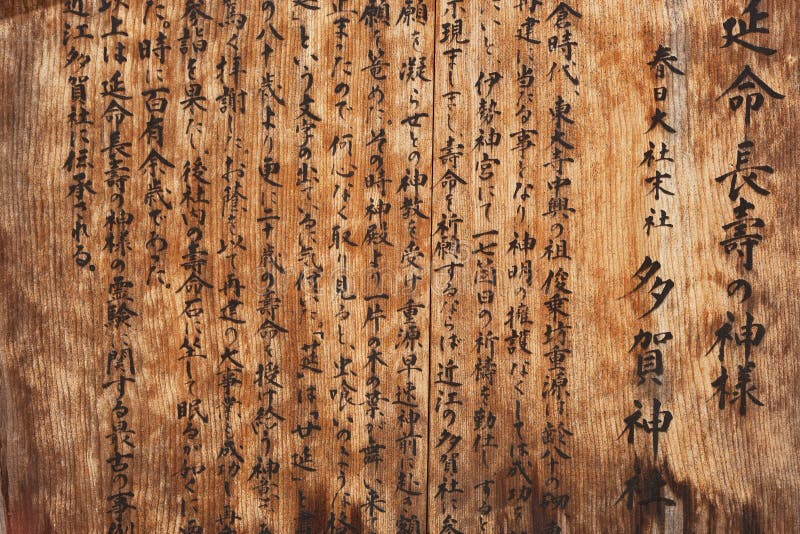 延命長壽の神様
春日大社末社 多賀神社
倉時代、東大寺中興の祖俊乗坊重源は齢八十の砌
再建に当たる事となり神明の擁護なくしては成功
ないと、伊勢神宮にて一七箇日の祈祷を勤仕すると
示現ましまし寿命を祈願するならば近江の多賀社に参
願を凝らせとの神教を受け重源早速神前に赴き額
願を篭めた。その時神殿より一片の木の葉が舞い来
止まったので何心なく取り見ると、虫喰いのように
延」という文字の出ているに気付いた。「莚」は「廿延」と
の八十歳より更に二十歳の寿命を授け給う神意
篤く拝謝した。お蔭を以て再建の大事業も成功し再
参詣を果たし、後社内の寿命石に坐して眠るが如くに
た。時に百有余歳であった。
以上は延命長寿の神様の霊験に関する最古の事例
近江多賀社に伝承される。